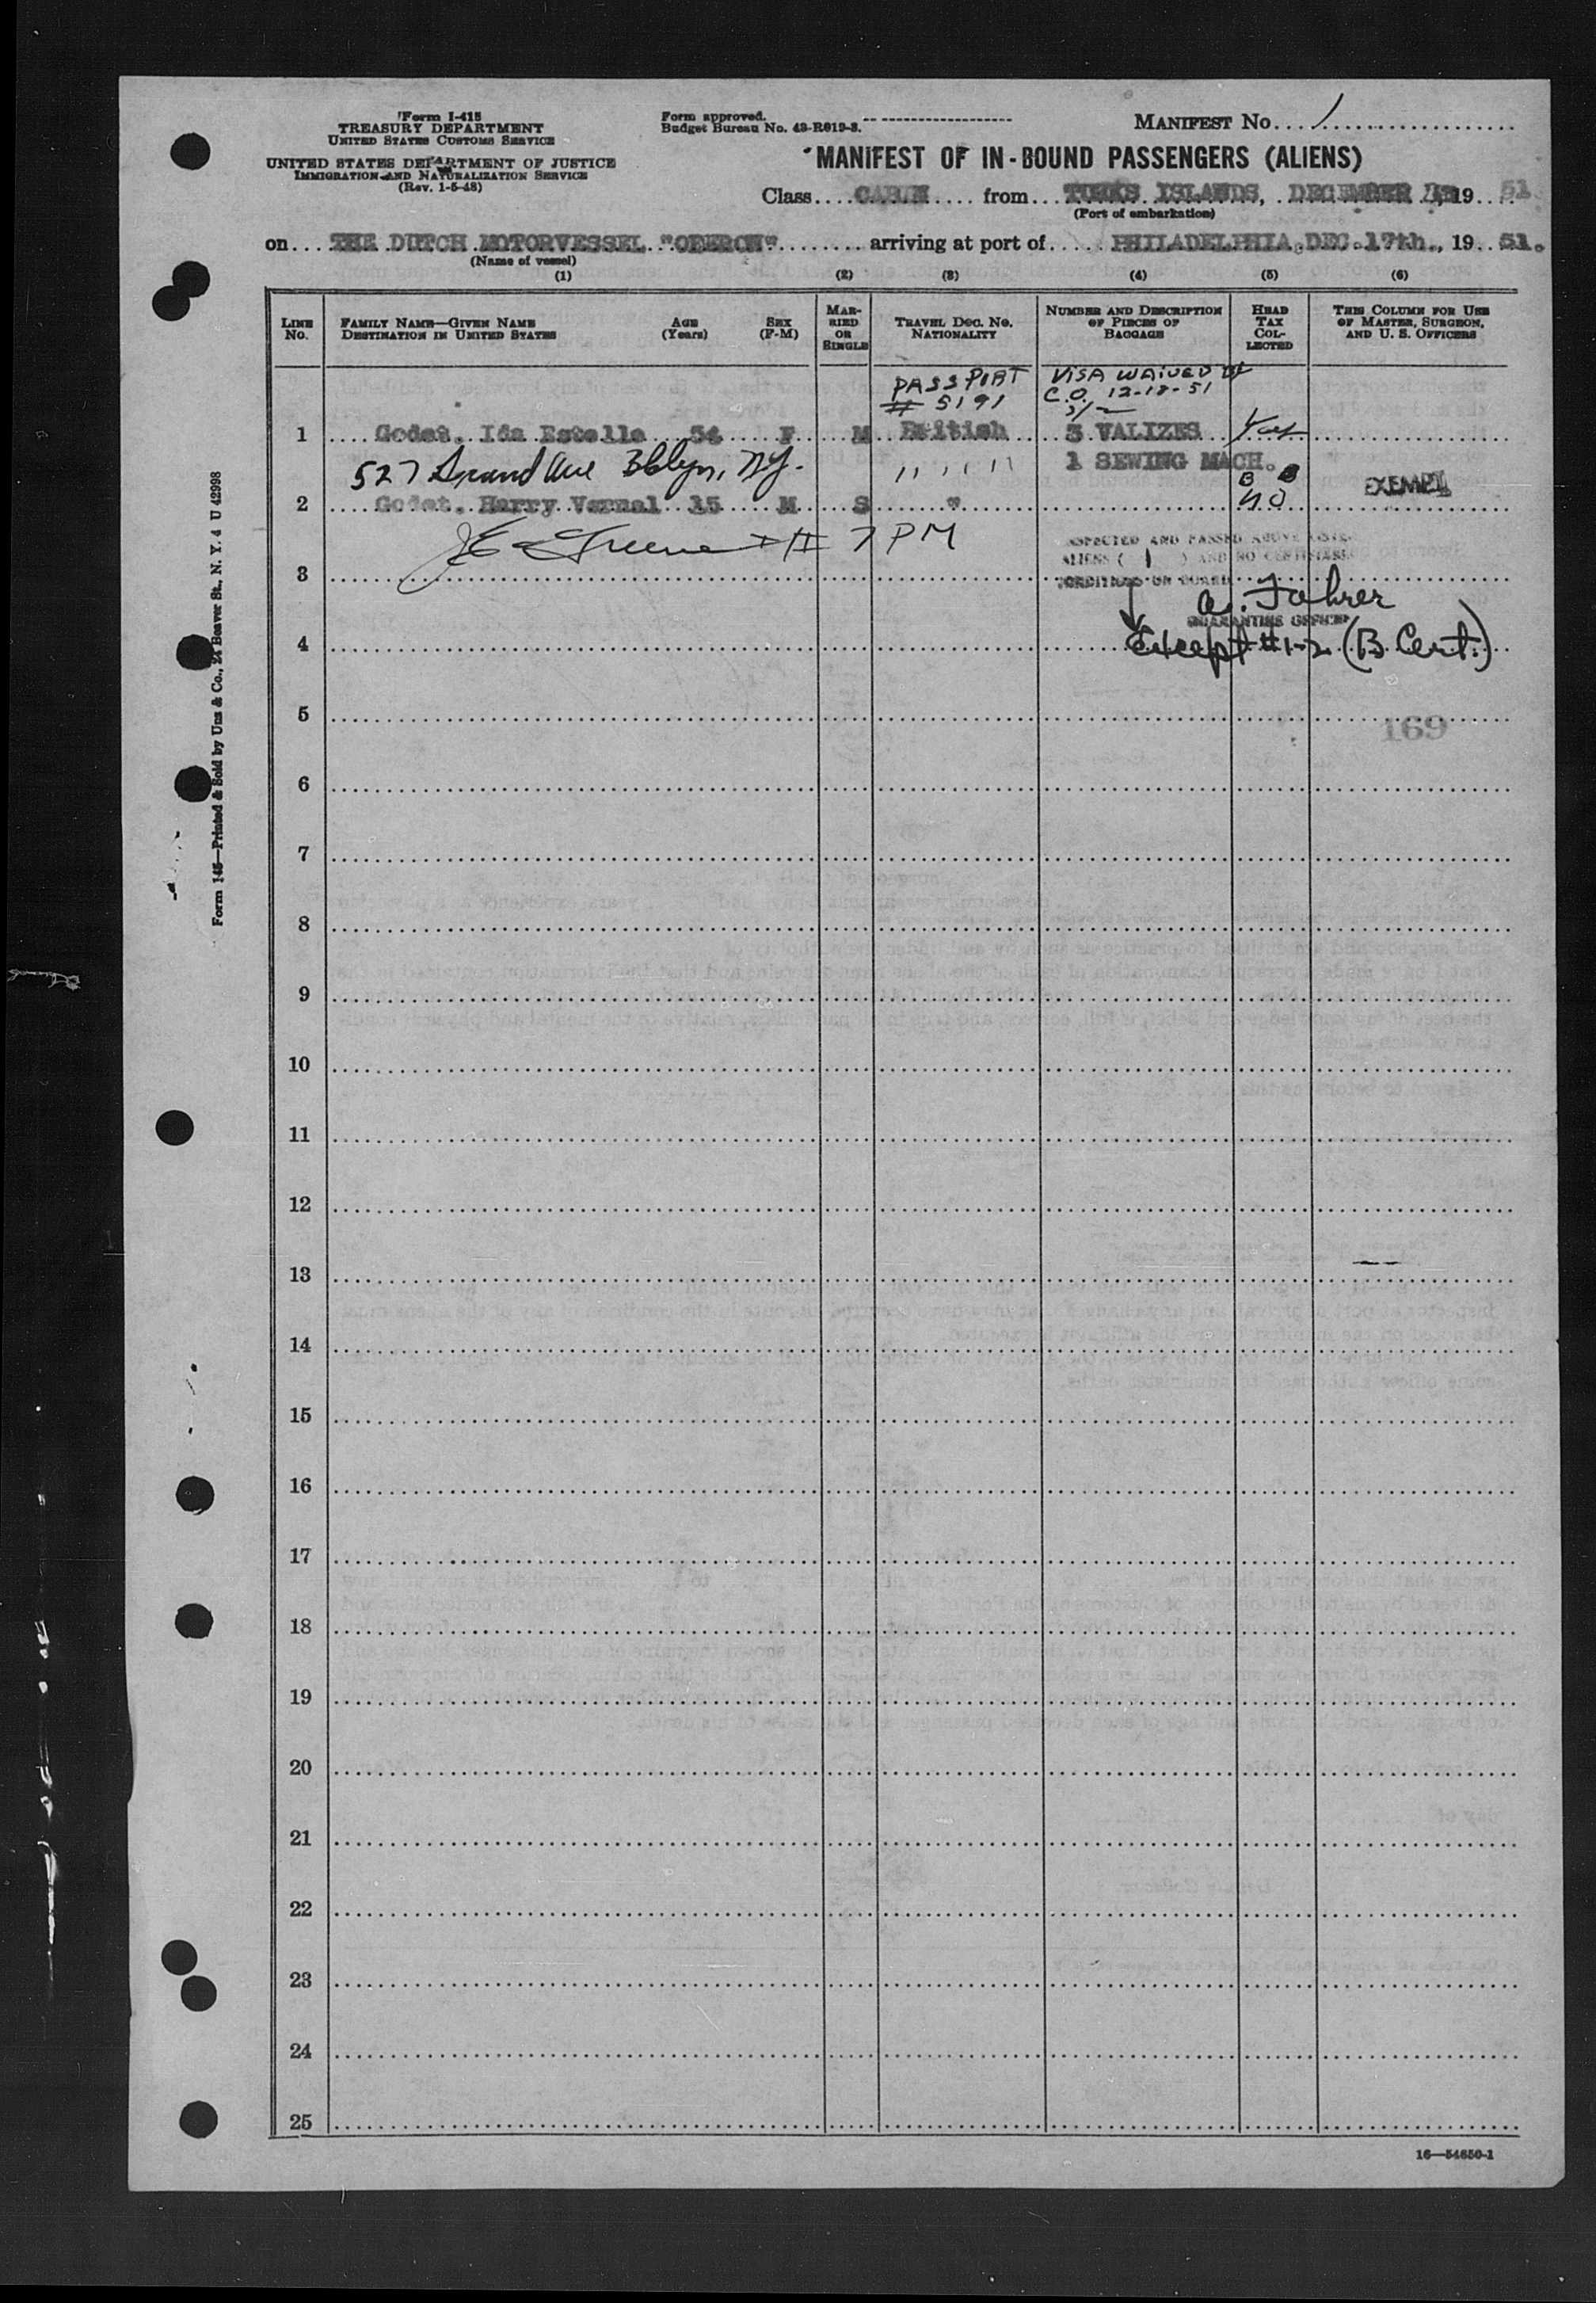 Form I-415
TREASURY DEPARTMENT
UNITED STATES CUSTOMS SERVICE
UNITED STATES DEPARTMENT OF JUSTICE
IMMIGRATION AND NATURALIZATION SERVICE
(Rev. 1-5-48)
Form approved.
Budget Bureau No. 43-R019-3.
MANIFEST No. 1
MANIFEST OF IN-BOUND PASSENGERS (ALIENS)
Class CABIN from TURKS ISLANDS, DECEMBER 19 51
(Port of embarkation)
on THE DUTCH MOTORVESSEL "OBERON" arriving at port of PHILADELPHIA, DEC. 17th., 19 51.
(Name of vessel)
(1) (2) (3) (4) (5) (6)
LINE No.
FAMILY NAME—GIVEN NAME
DESTINATION IN UNITED STATES
AGE (Years)
SEX (F-M)
MARRIED OR SINGLE
TRAVEL DOC. NO. NATIONALITY
NUMBER AND DESCRIPTION OF PIECES OF BAGGAGE
HEAD TAX COLLECTED
THIS COLUMN FOR USE OF MASTER, SURGEON, AND U. S. OFFICERS
PASSPORT VISA WAIVED
# 5191 C.O. 12-18-51
1 Godet, Ida Estelle 54 F M British 3 VALIZES Yes
527 Grand Ave Bklyn, N.Y. " " " " 1 SEWING MACH.
B B
2 Godet, Harry Vernal 15 M S " NO EXEMPT
J E Greene 7 PM
INSPECTED AND PASSED ABOVE LISTED
ALIENS ( 1 ) AND NO CERTIFIABLE
CONDITIONS ON BOARD
3
A. Fahrer
QUARANTINE OFFICER
4 Except #1-2 (B Cert.)
5
169
6
7
8
9
10
11
12
13
14
15
16
17
18
19
20
21
22
23
24
25
16—54650-1
Form 145—Printed & Sold by Unz & Co., 24 Beaver St., N. Y. 4 U 42998